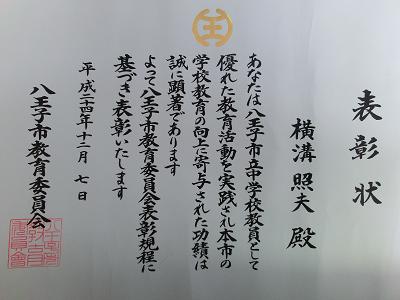 表彰状
横溝照夫殿
あなたは八王子市立中学校教員として
優れた教育活動を実践され本市の
学校教育の向上に寄与された功績は
誠に顕著であります
よって八王子市教育委員会表彰規程に
基づき表彰いたします
平成二十四年十二月七日
八王子市教育委員会